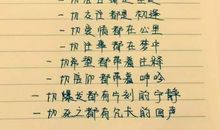 一切交往都是初逢
一切爱情都在心里
一切往事都在梦中
一切希望都带着注释
一切信仰都带着呻吟
一切爆发都有片刻的宁静
一切死亡都有冗长的回声